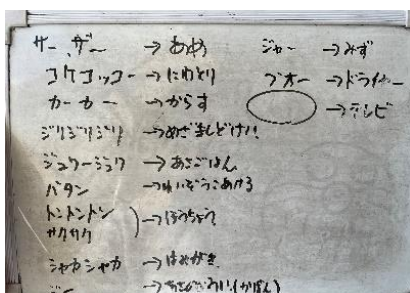 サー、ザー →あめ
コケコッコー →にわとり
カーカー →からす
ジリジリジリ →めざましどけい
ジュワージュワ →あさごはん
バタン →れいぞうこあける
トントントン
サクサク →ほうちょう
シャカシャカ →はみがき
ジャー →みず
ブオー →ドライヤー
→テレビ